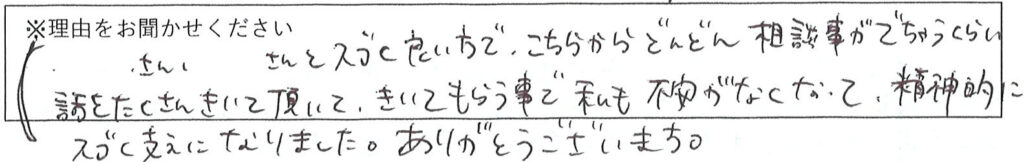 ※理由をお聞かせください
さん、 さんとスゴく良い方で、こちらからどんどん相談事がでちゃうくらい
話をたくさんきいて頂いて、きいてもらう事で私も不安がなくなって、精神的に
スゴく支えになりました。ありがとうございます。